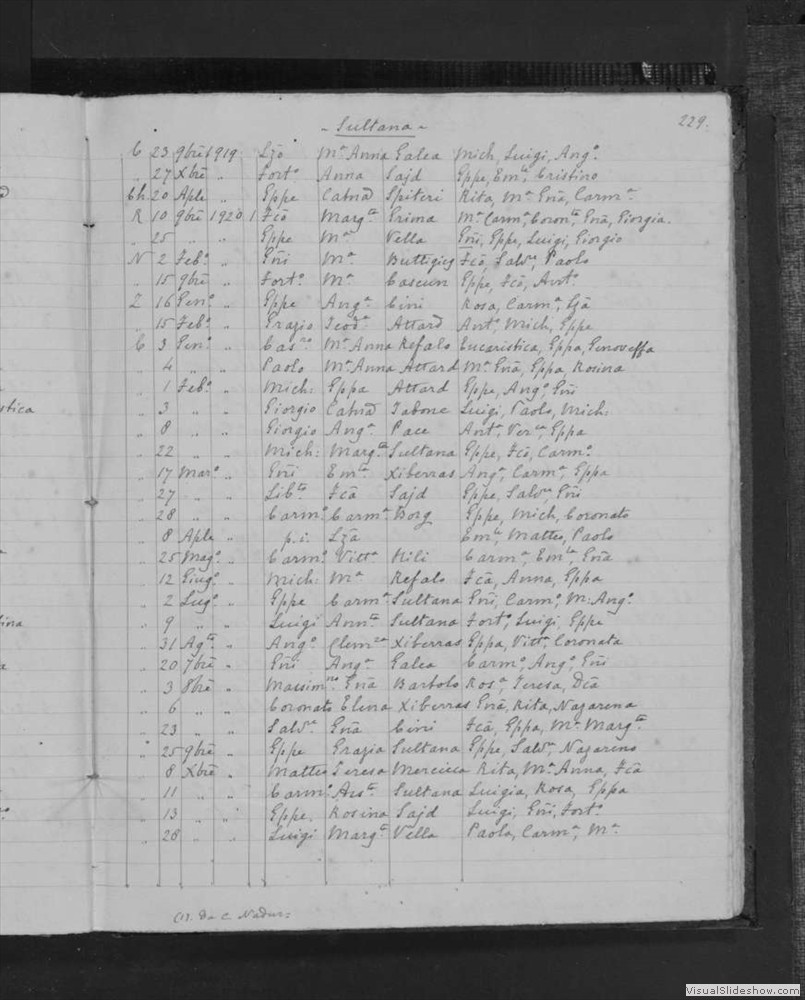 - Sultana -
229.
C 23 9bre 1919 Lzo Ma Anna Galea Mich, Luigi, Ango
„ 27 Xbre „ Forto Anna Sajd Eppe, Emla, Cristino
Ch. 20 Aple „ Eppe Catna Spiteri Rita, Ma Gna, Carma
R 10 9bre 1920 1. Fco Margta Grima Ma Carma, Coronta, Gna, Giorgia.
„ 25 „ „ Eppe Ma Vella Gni, Eppe, Luigi, Giorgio
N 2 Febo „ Gni Ma Buttigieg Fco, Salvre, Paolo
„ 15 9bre „ Forto Ma Cascun Eppe, Fco, Anto
Z 16 Geno „ Eppe Anga Cini Rosa, Carma, Lza
„ 15 Febo „ Grazio Teoda Attard Anto, Mich, Eppe
C 3 Geno „ Casno Ma Anna Refalo Eucaristica, Eppa, Genoveffa
„ 4 „ „ Paolo Ma Anna Attard Ma Gna, Eppa, Rosina
„ 1 Febo „ Mich: Eppa Attard Eppe, Ango, Gni
„ 3 „ „ Giorgio Catna Tabone Luigi, Paolo, Mich:
„ 8 „ „ Giorgio Anga Pace Anto, Verca, Eppa
„ 22 „ „ Mich: Margta Sultana Eppe, Fco, Carmo
„ 17 Maro „ Gni Emla Xiberras Anga, Carma, Eppa
„ 27 „ „ Libto Fca Sajd Eppe, Salvre, Gni
„ 28 „ „ Carmo Carma Borg Eppe, Mich, Coronato
„ 8 Aple „ p.i. Lza Emle, Matteo, Paolo
„ 25 Mago „ Carmo Vitta Mili Carma, Emla, Gna
„ 12 Giugo „ Mich: Ma Refalo Fca, Anna, Eppa
„ 2 Lugo „ Eppe Carma Sultana Gni, Carmo, M: Ango
„ 9 „ „ Luigi Annta Sultana Forto, Luigi, Eppe
„ 31 Agto „ Ango Clemza Xiberras Eppa, Vitta, Coronata
„ 20 7bre „ Gni Anga Galea Carmo, Ango, Gni
„ 3 8bre „ Massimno Gna Bartolo Rosa, Teresa, Dca
„ 6 „ „ Coronato Elena Xiberras Gna, Rita, Nazarena
„ 23 „ „ Salvre Gna Cini Fca, Eppa, Ma Margta
„ 25 9bre „ Eppe Grazia Sultana Eppe, Salvre, Nazareno
„ 8 Xbre „ Matteo Teresa Mercieca Rita, Ma Anna, Fca
„ 11 „ „ Carmo Sultana Luigia, Rosa, Eppa
„ 13 „ „ Eppe. Rosina Sajd Luigi, Gni, Forto
„ 28 „ „ Luigi Margta Vella Paola, Carma, Ma
(1). Da C. Nadur:
VisualSlideshow.com